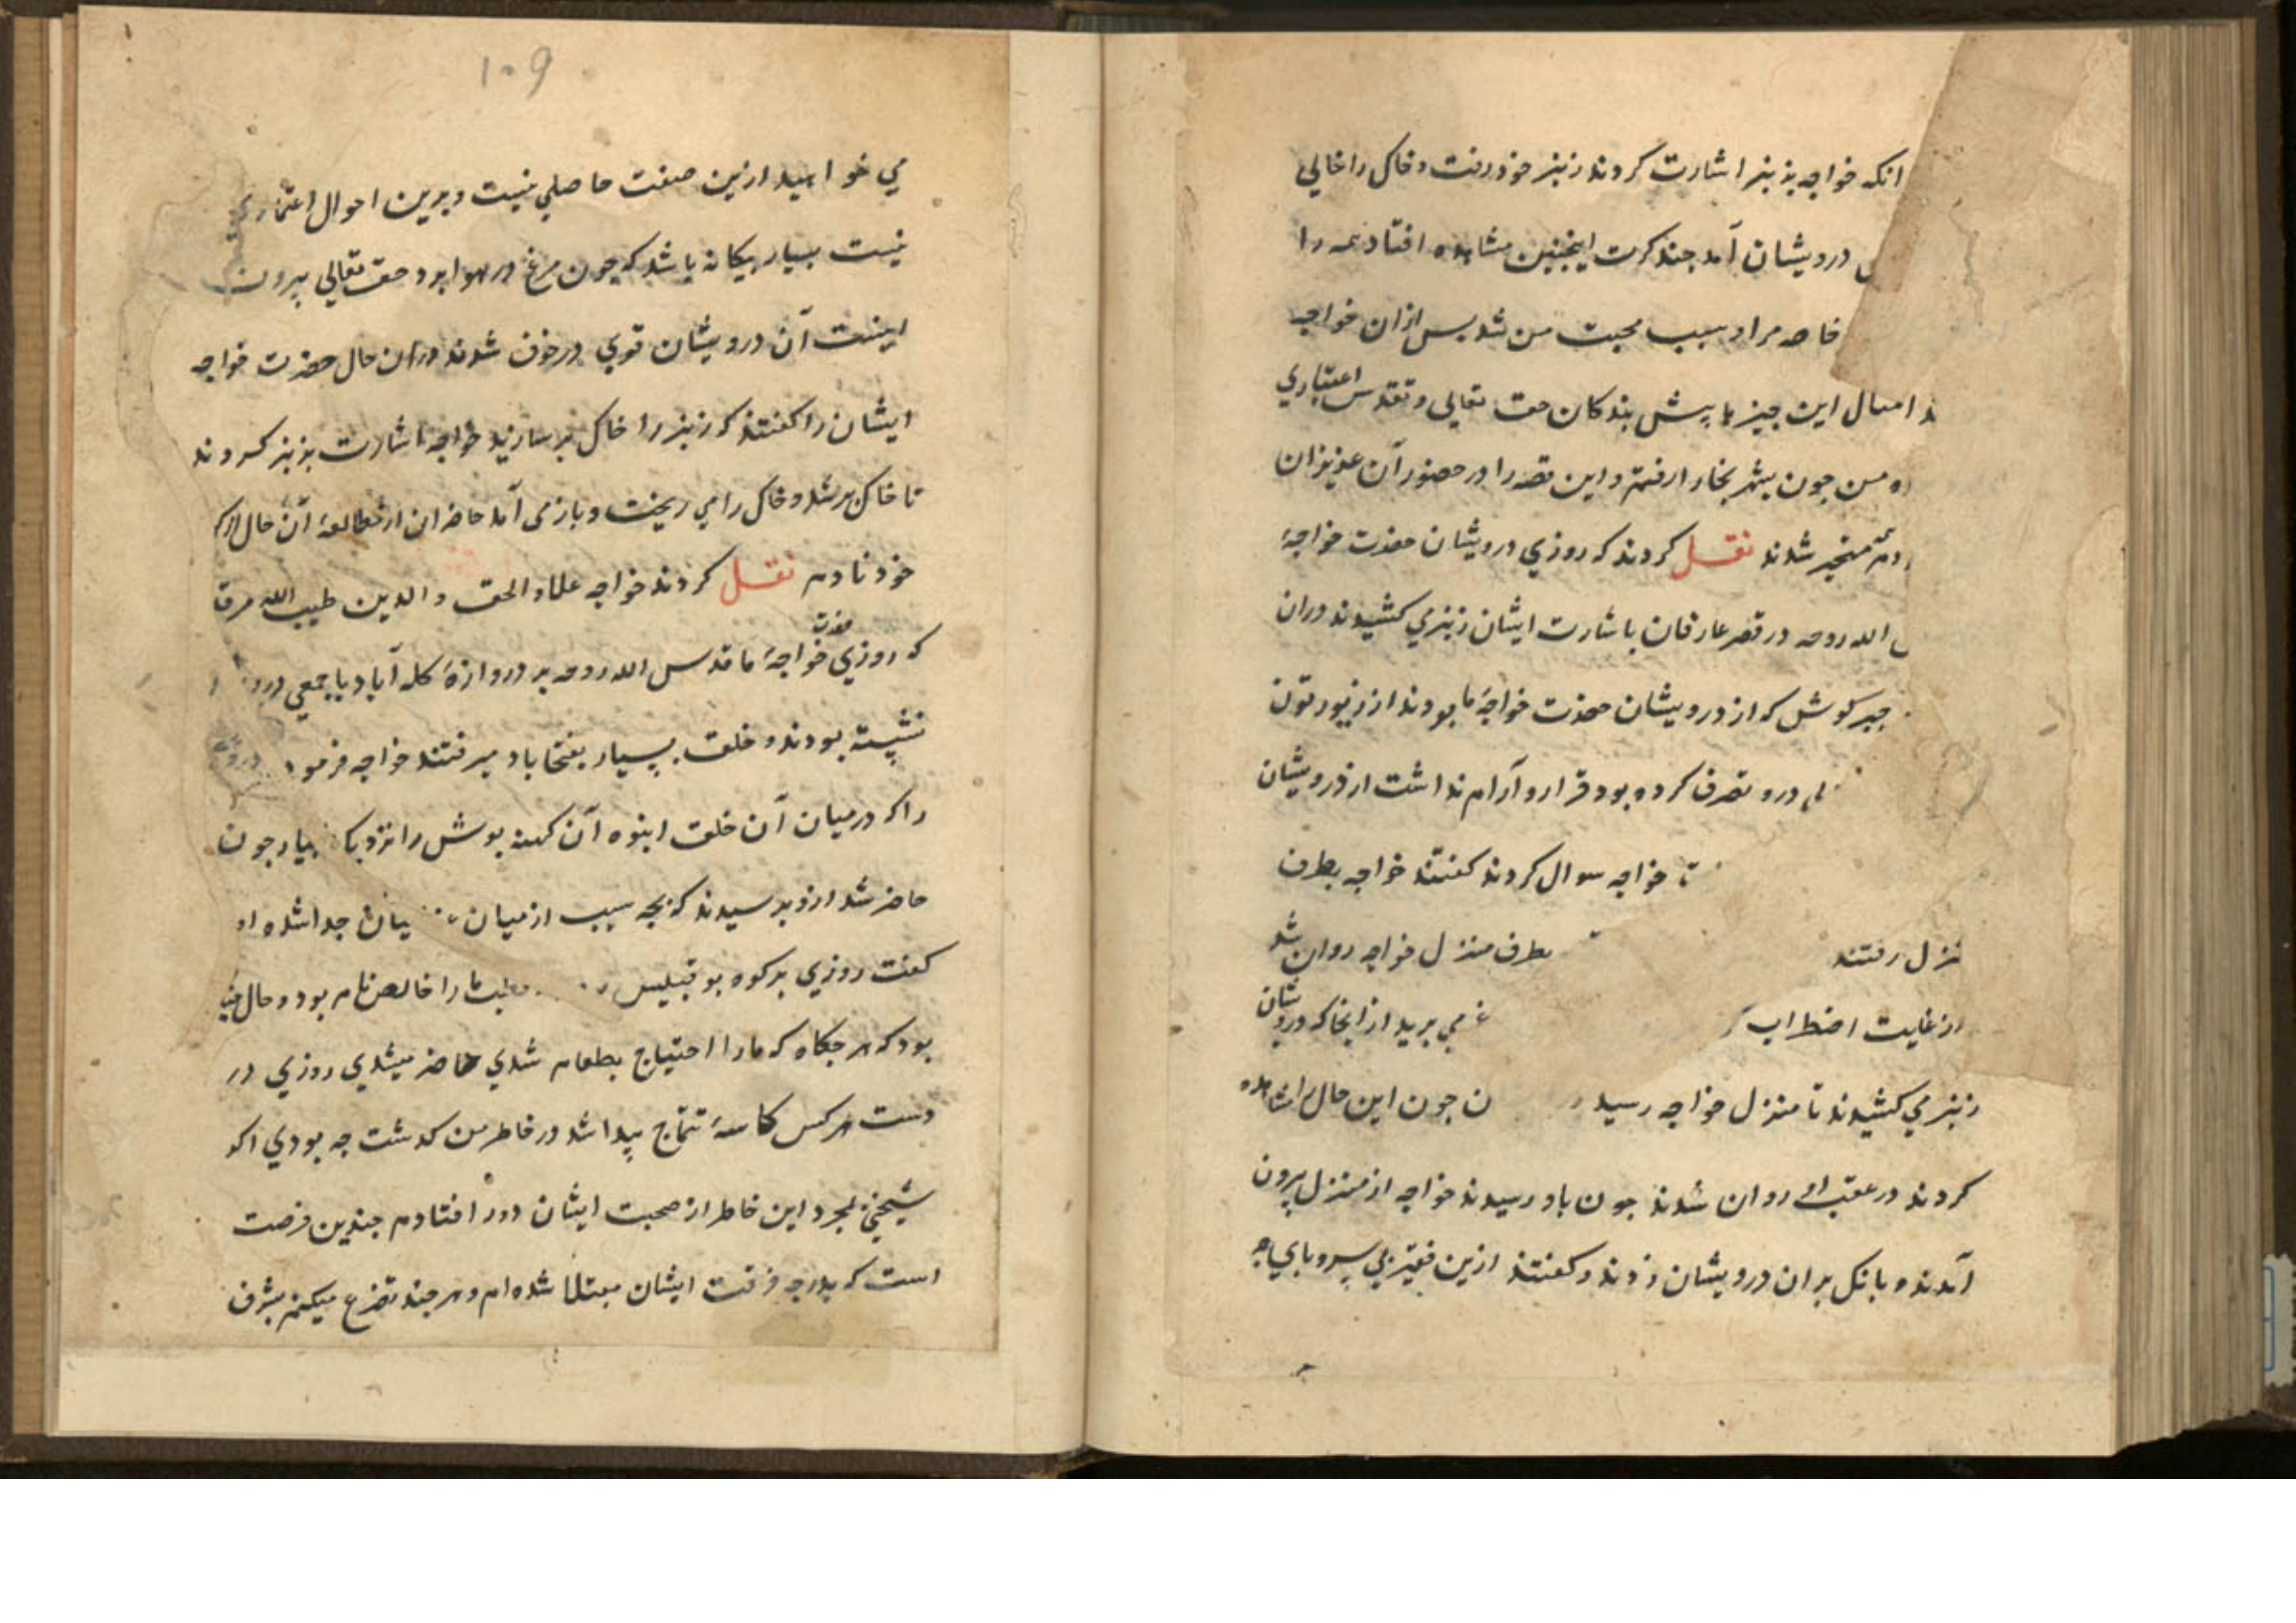 انکه خواجه بزنبر اشارت کردند زنبر خود رفت و خاک را خالی
درویشان آمد چند کرت اینچنین مشاهده افتاد همه را
خاصه مرا و سبب محبت من شد پس ازان خواجه
امثال این چیزها پیش بندکان حق تعالی و تقدس اعتباری
من چون بشهر بخارا رفتم و این قصه را در حضور آن عزیزان
متحیر شدند نقل کردند که روزی درویشان حضرت خواجهٔ
الله روحه در قصر عارفان باشارت ایشان زنبر می کشیدند دران
کوش که از درویشان حضرت خواجهٔ ما بودند از زیورتون
درو تصرف کرده بود قرار و آرام نداشت از درویشان
خواجه سوال کردند کفتند خواجه بطرف
منزل رفتند بطرف منزل خواجه روان شد
از غایت اضطراب می برید از انجا که درویشان
زنبر می کشیدند تا منزل خواجه رسید چون این حال را مشاهده
کردند در عقب او روان شدند چون باو رسیدند خواجه از منزل بیرون
آمدند و بانک بران درویشان زدند و کفتند ازین فقیر بی سر و پای چه
۱۰۹
می خواهید ازین صفت حاصلی نیست و برین احوال اعتماری
نیست بسیار بیکانه باشد که چون مرغ در هوا برد حق تعالی بیرون
اینست آن درویشان قوی در خوف شدند دران حال حضرت خواجه
ایشان را کفتند که زنبر را خاک بر سازید خواجه اشارت بزنبر کردند
تا خاک بر شد و خاک را می ریخت و باز می آمد حاضران از مطالعهٔ آن حال از
خود نادم نقل کردند خواجه علاء الحق و الدین طیب الله مرقده
که روزی حضرت خواجهٔ ما قدس الله روحه بر دروازهٔ کله آباد با جمعی
نشسته بودند و خلق بسیار بفتحاباد میرفتند خواجه فرمود
را که در میان آن خلق انبوه آن کهنه پوش را نزدیک بیار چون
حاضر شد ازو پرسیدند که بچه سبب از میان جدا شده او
کفت روزی بر کوه بو قبیس را خالص نام بود و حال
بود که هر چکاه که ما را احتیاج بطعام شدی حاضر میشدی روزی در
دست هر کس کاسهٔ تتماج پیدا شد در خاطر من کذشت چه بودی اکر
شیخی بمجرد این خاطر از صحبت ایشان دور افتادم چندین فرصت
است که بدرجهٔ فرقت ایشان مبتلا شده ام و هر چند تضرع میکنم بشرف